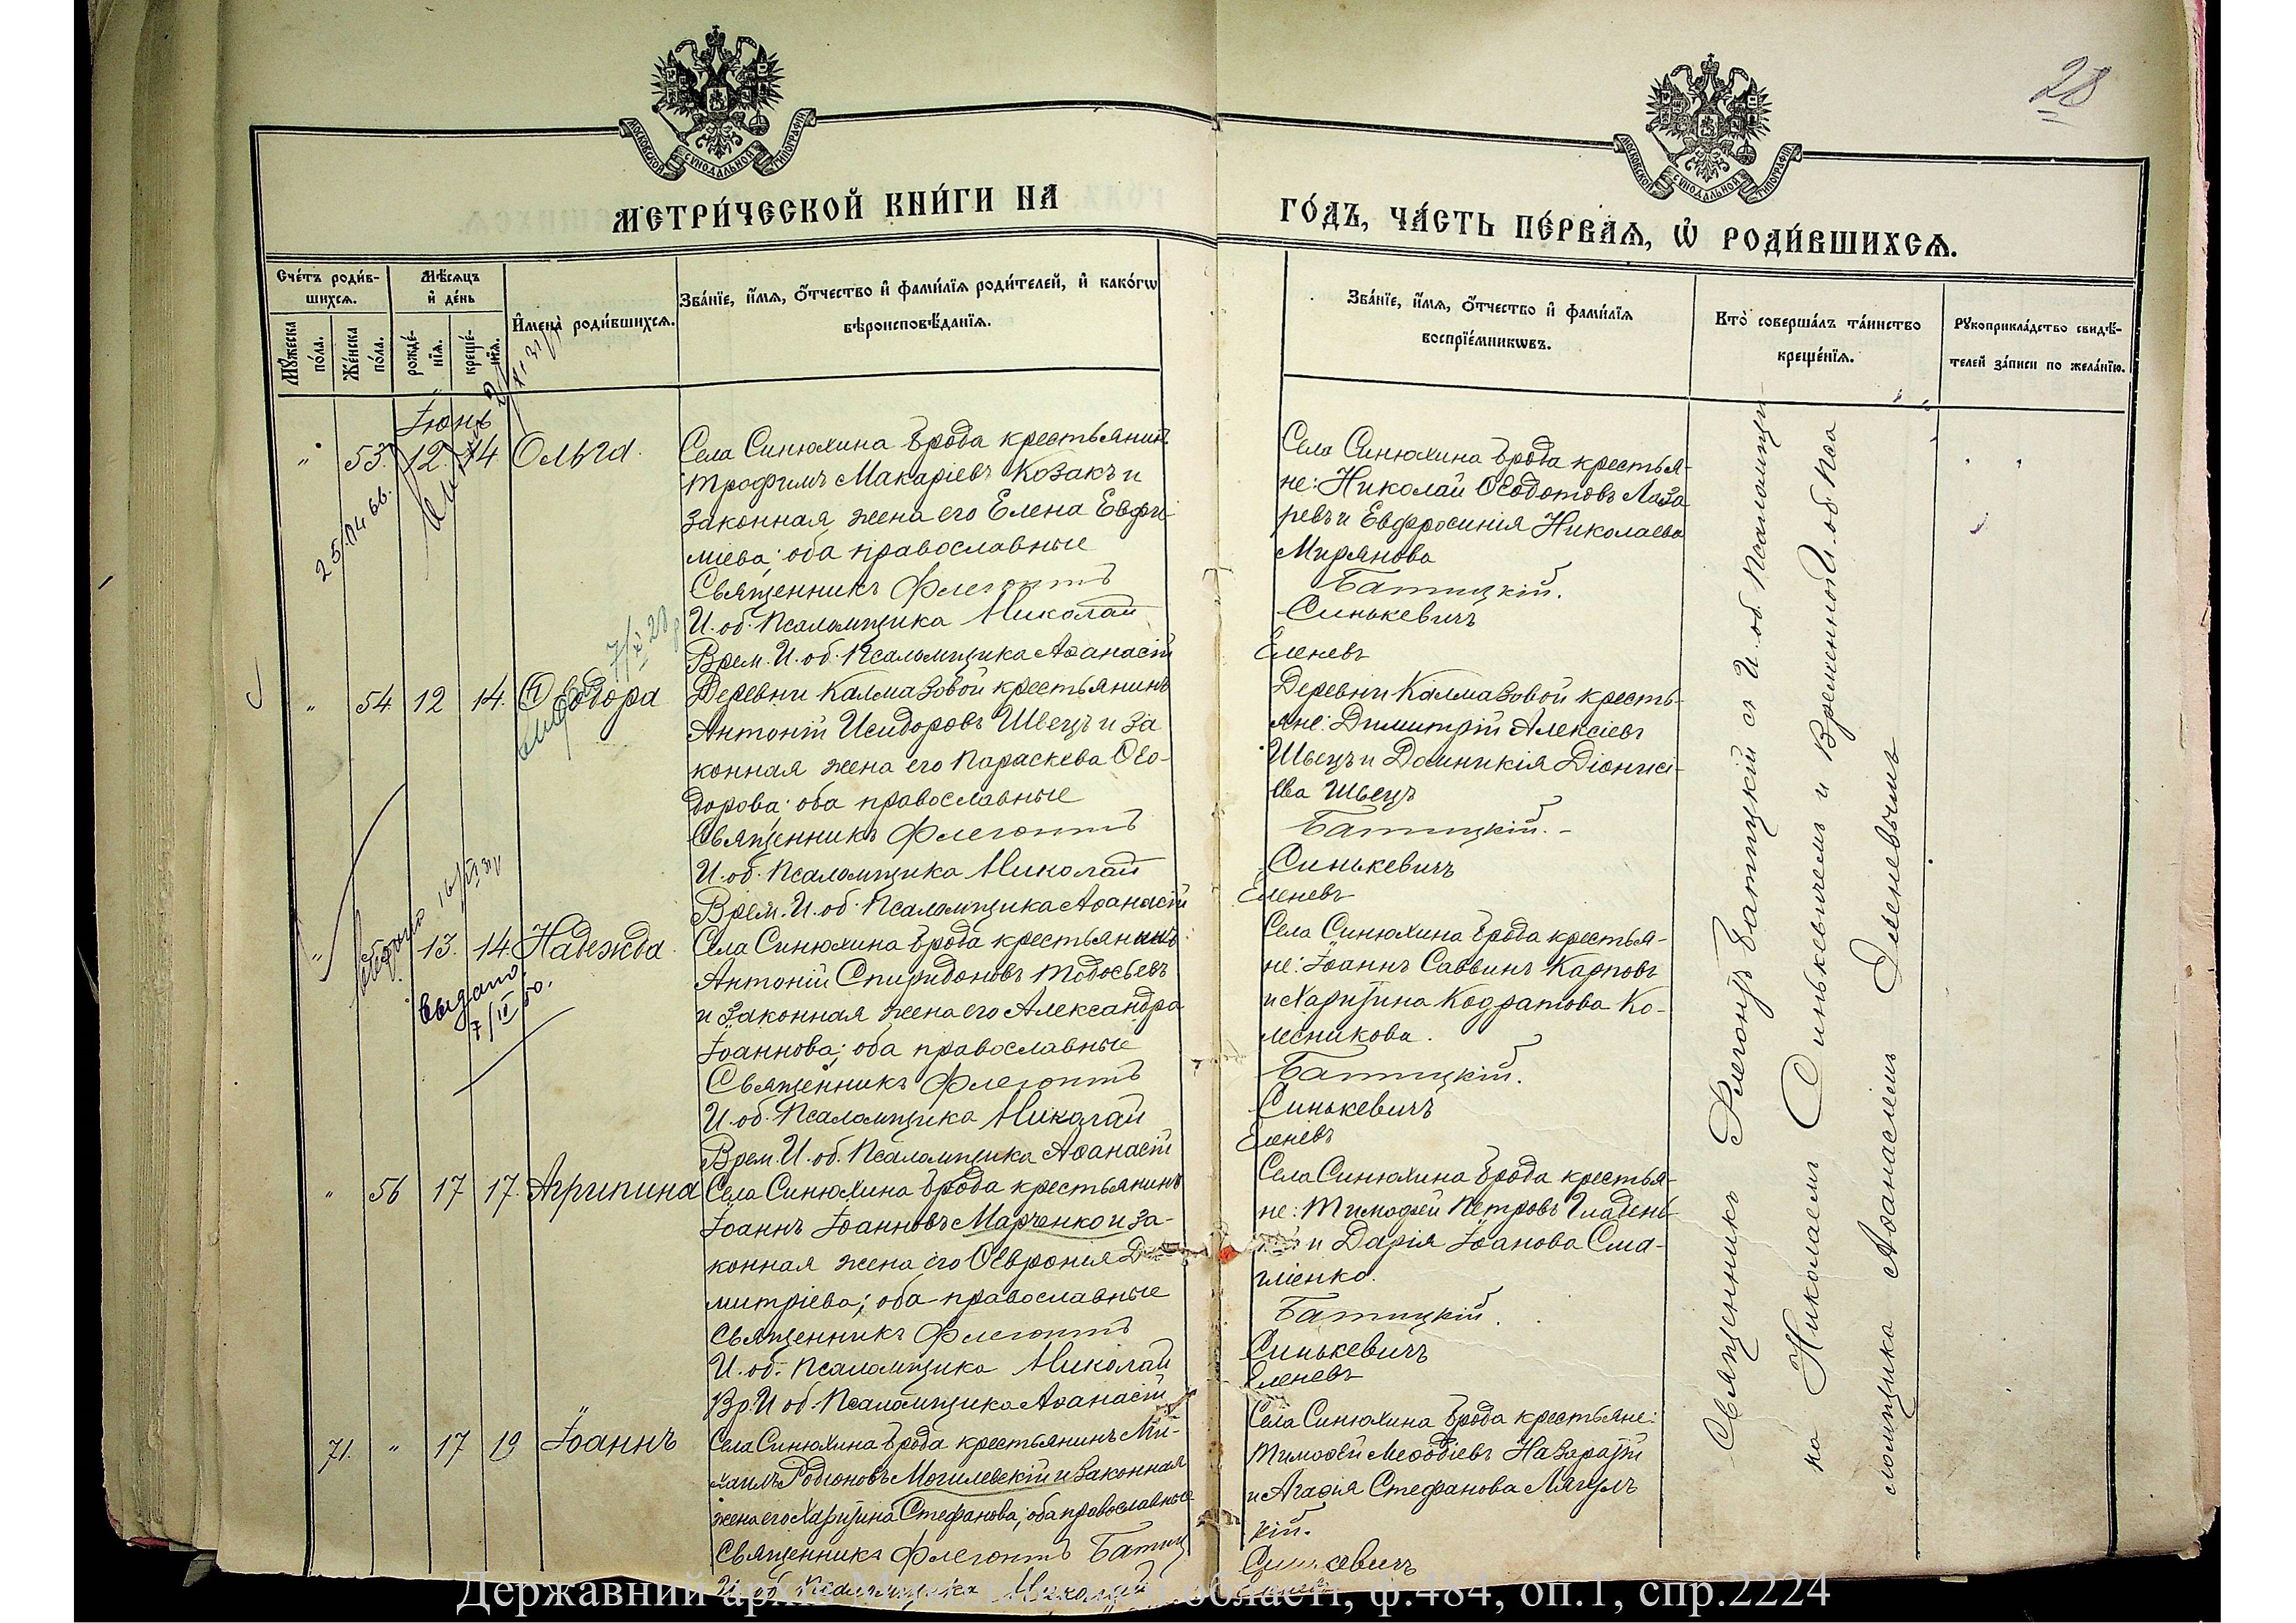 28
МОСКОВСКОЙ СѴНОДАЛЬНОЙ ТИПОГРАФІИ
МОСКОВСКОЙ СѴНОДАЛЬНОЙ ТИПОГРАФІИ
МЕТРИ́ЧЕСКОЙ КНИ́ГИ НА
ГО́ДЪ, ЧА́СТЬ ПЕ́РВАѦ, Ѡ҆ РОДИ́ВШИХСѦ.
Сче́тъ роди́в-
шихсѧ.
Мѣ́сѧцъ
и҆ де́нь
Мꙋ́жеска
по́ла.
Же́нска
по́ла.
рожде́-
нїѧ.
креще́-
нїѧ.
И҆мена̀ роди́вшихсѧ.
Зва́нїе, и҆́мѧ, ѻ҆́тчество и҆ фами́лїѧ роди́телей, и҆ како́гѡ
вѣроисповѣ́данїѧ.
Зва́нїе, и҆́мѧ, ѻ҆́тчество и҆ фами́лїѧ
воспрїе́мникѡвъ.
Кто̀ соверша́лъ та́инство
креще́нїѧ.
Рꙋкоприкла́дство свидѣ́-
телей за́писи по жела́нїю.
Іюнь
" 53. 12. 14. Ольга.
Села Синюхина Брода крестьянинъ
Трофимъ Макаріевъ Козакъ и
законная жена его Елена Евфи-
міева; оба православные
Священникъ Флегонтъ
И. об. Псаломщика Николай
Врем. И. об. Псаломщика Аѳанасій
Села Синюхина Брода крестья-
не: Николай Ѳеодотовъ Лаза
ревъ и Евфросинія Николаева
Мирянова
Батицкій.
Синькевичъ
Еленевъ
" 54. 12 14. Ѳеодора
Деревни Калмазовой крестьянинъ
Антоній Исидоровъ Швецъ и за
конная жена его Параскева Ѳео-
дорова; оба православные
Священникъ Флегонтъ
И. об. Псаломщика Николай
Врем. И. об. Псаломщика Аѳанасій
Деревни Калмазовой кресть-
яне: Димитрій Алексіевъ
Швецъ и Домникія Діонисі-
ева Швецъ
Батицкій.
Синькевичъ
Еленевъ
" 13. 14. Надежда.
выдано
7/II 50.
Села Синюхина Брода крестьянинъ
Антоній Спиридоновъ Тодосьевъ
и законная жена его Александра
Іоаннова; оба православные
Священникъ Флегонтъ
И. об. Псаломщика Николай
Врем. И. об. Псаломщика Аѳанасій
Села Синюхина Брода крестья-
не: Іоаннъ Саввинъ Карповъ
и Харитина Кодратова Ко-
лесникова.
Батицкій.
Синькевичъ
Еленевъ
" 56 17 17. Агрипина
Села Синюхина Брода крестьянинъ
Іоаннъ Іоанновъ Марченко и за-
конная жена его Ѳевронія Ди
митріева; оба православные
Священникъ Флегонтъ
И. об. Псаломщика Николай
Вр. И об. Псаломщика Аѳанасій
Села Синюхина Брода крестья-
не: Тимофей Петровъ Гладень
и Дарія Іоанова Сма-
гліенко.
Батицкій.
Синькевичъ
Еленевъ
71. " 17 19 Іоаннъ
Села Синюхина Брода крестьянинъ Ми-
хаилъ Родіоновъ Могилевскій и законная
жена его Харитина Стефанова; оба православные
Священникъ Флегонтъ Батиц
И. об. Псаломщика Николай
Села Синюхина Брода крестьяне:
Тимоѳей Меѳодіевъ Назарътй
и Агаѳія Стефанова Лягулъ
кій.
Синькевичъ
Священникъ Флегонтъ Батицкій съ И. об. Псаломщи
ка Николаемъ Синькевичемъ и Временной И. об. Пса
ломщика Аѳанасіемъ Еленевымъ
Державний архів Миколаївської області, ф.484, оп.1, спр.2224